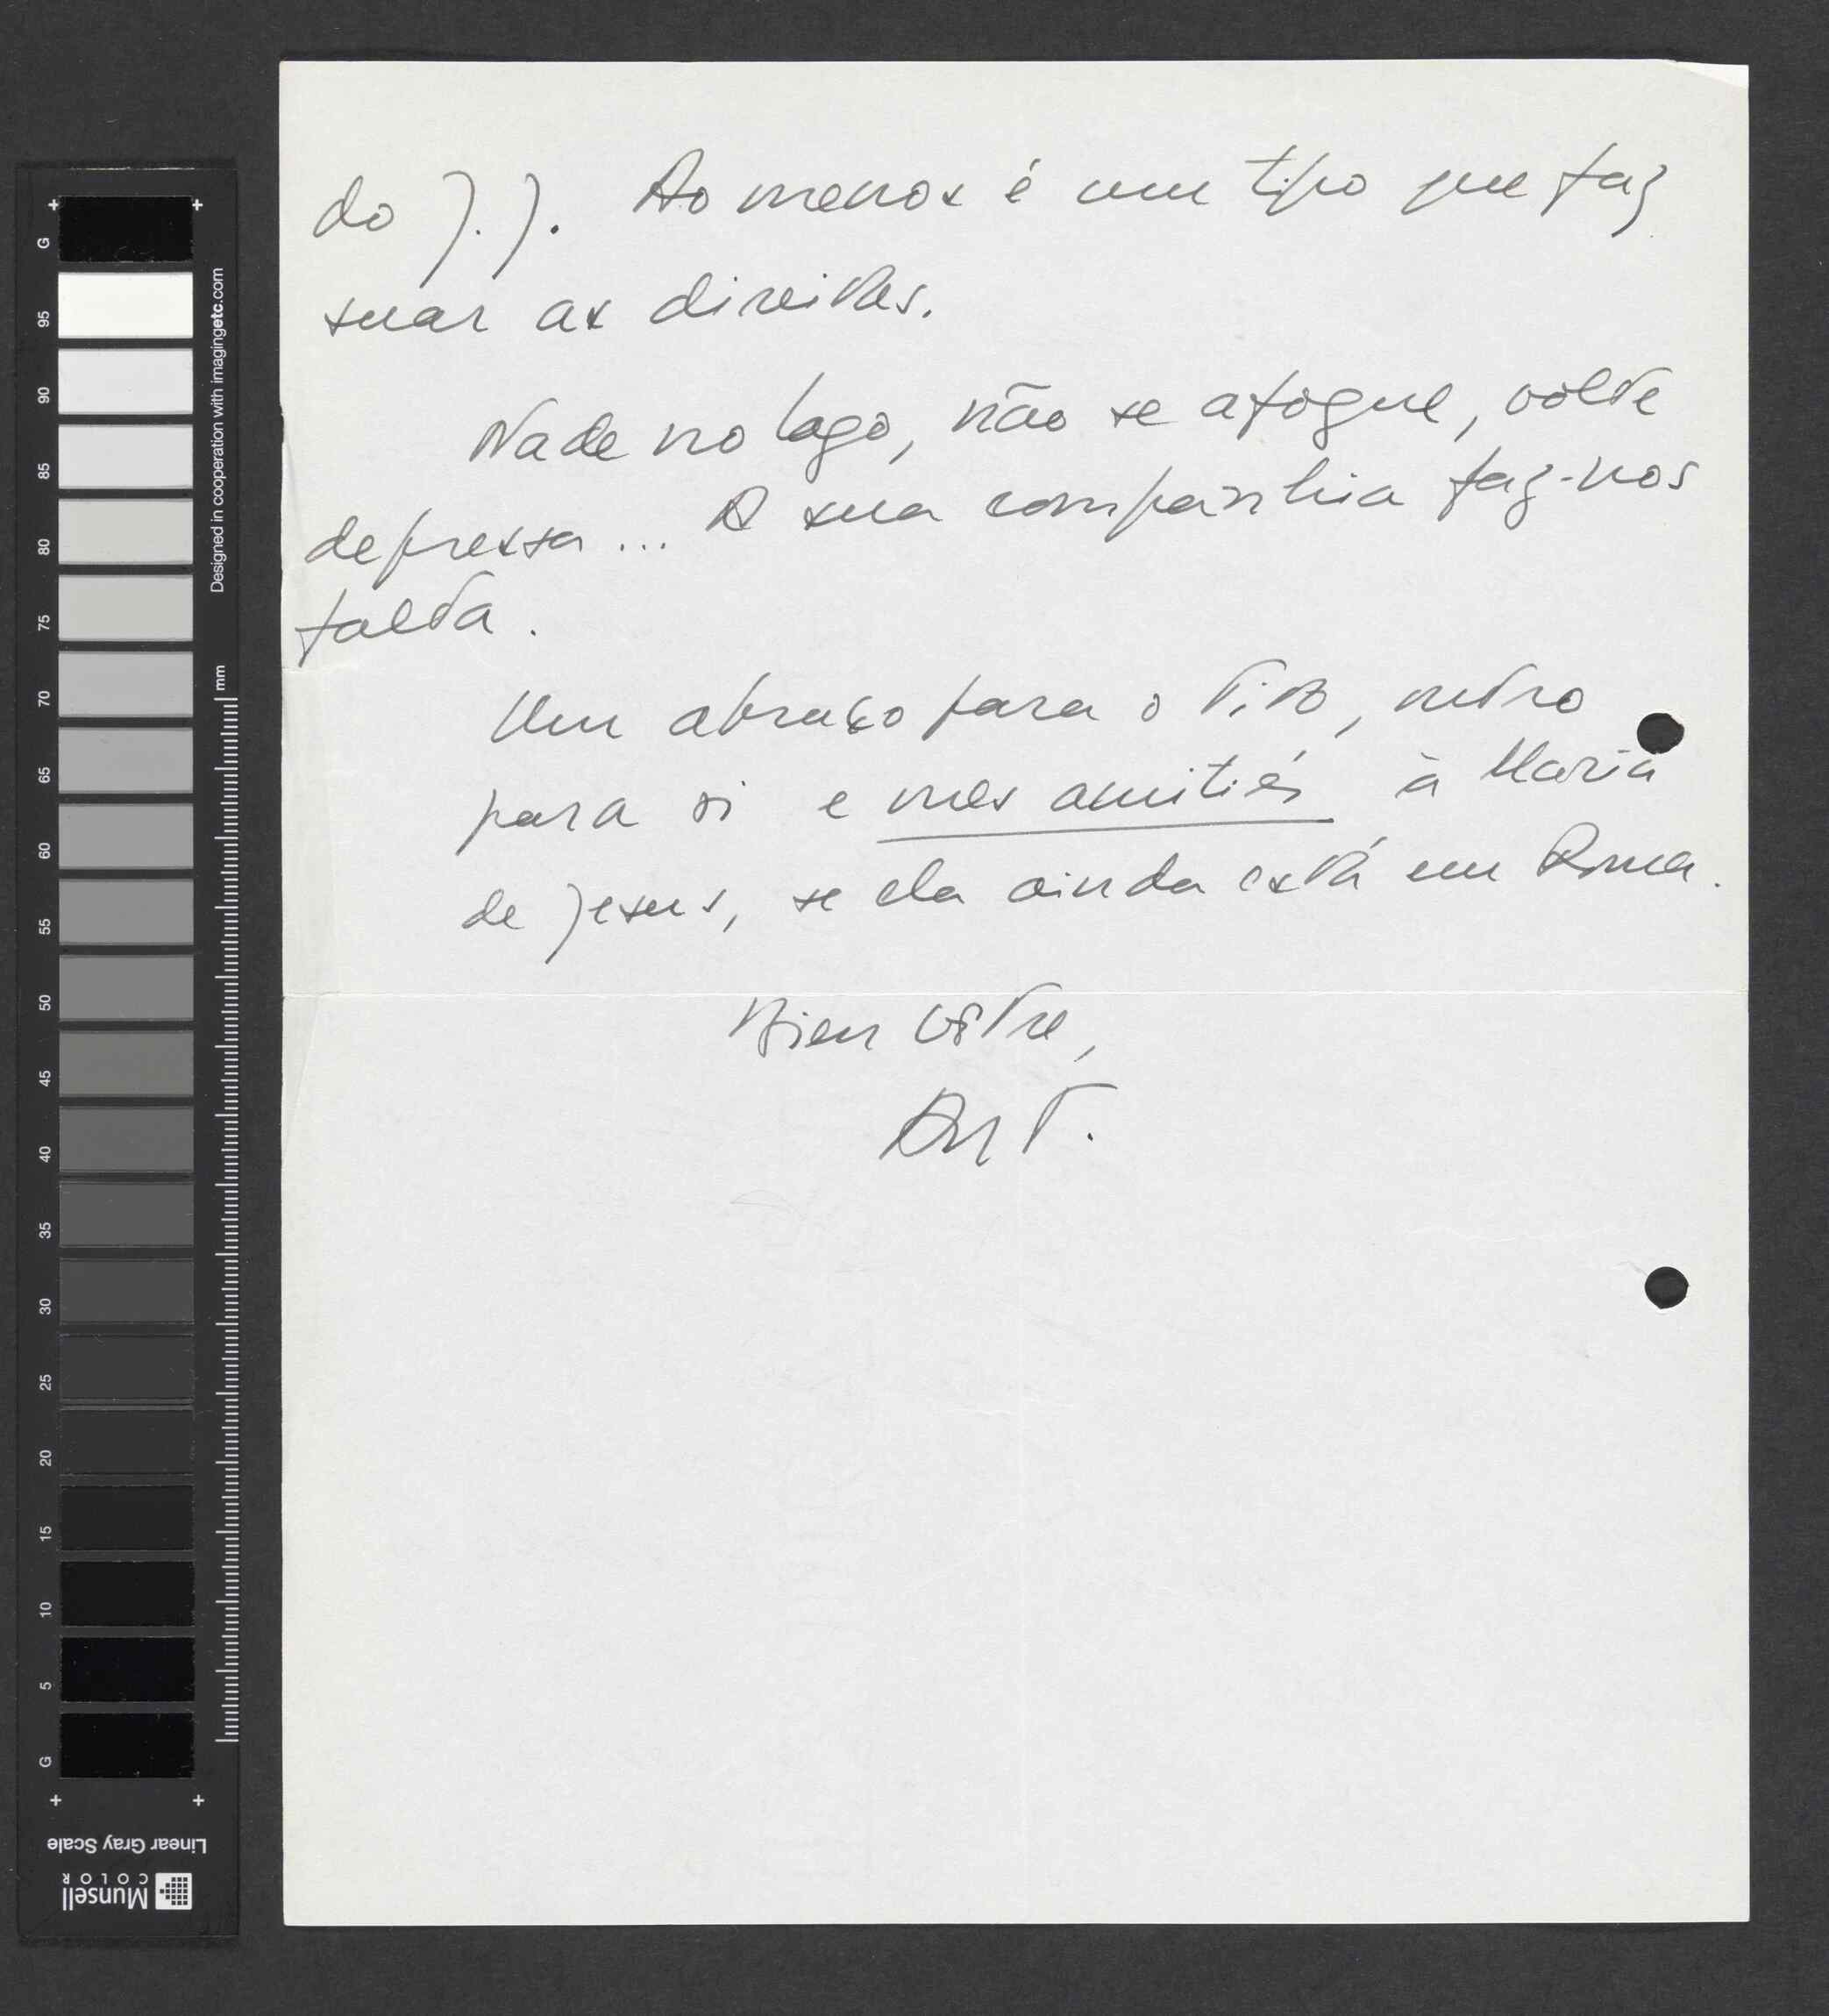 do J.J. Ao menos é um tipo que faz
suar as direitas.
Nade no lago, não se afogue, volte
depressa... A sua companhia faz-nos
falta.
Um abraço para o Tito, outro
para si e mes amitiés à Maria
de Jesus, se ela ainda está em Roma.
Bien vôtre,
Ant.
G
95
90
85
80
75
70
65
60
55
50
45
40
35
30
25
20
15
10
5
G
Designed in cooperation with imagingetc.com
mm
Linear Gray Scale
Munsell
COLOR